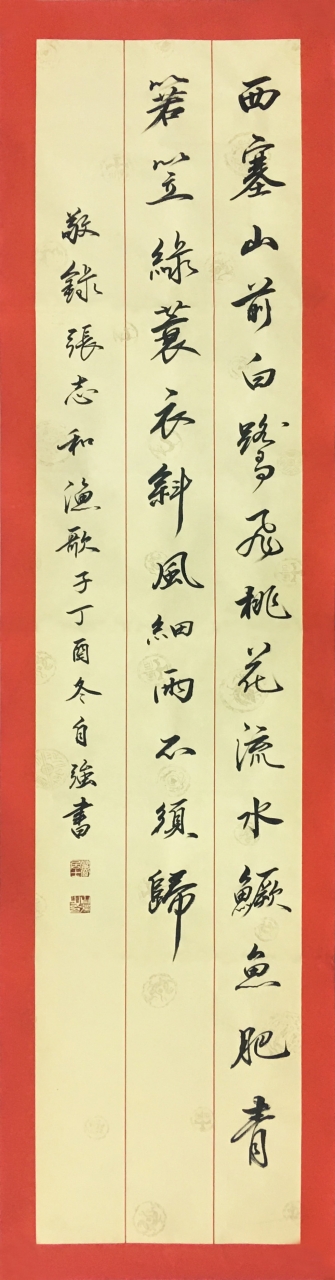 西塞山前白鹭飛桃花流水鱖魚肥青
箬笠綠蓑衣斜風細雨不須歸
敬錄張志和漁歌子丁酉冬自強書